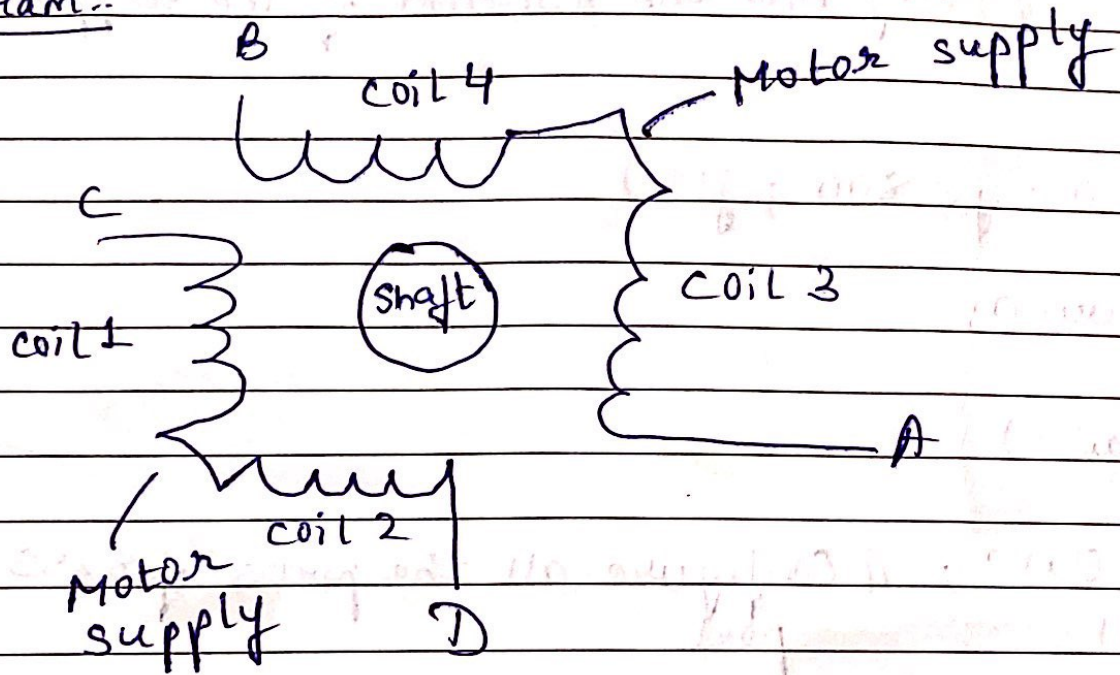 B
coil 4
Motor supply
C
shaft
coil 3
coil 1
A
coil 2
Motor
supply
D